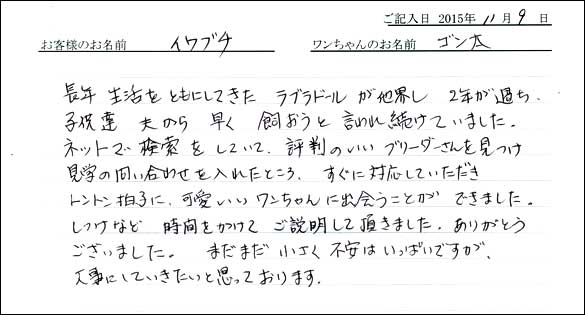 ご記入日 2015年 11月 9日
お客様のお名前 イワブチ ワンちゃんのお名前 ゴン太
長年 生活をともにしてきた ラブラドール が他界し 2年が過ち、
子供達 夫から 早く 飼おうと 言われ続けていました。
ネットで 検索をしていて、評判のいい ブリーダーさんを見つけ
見学の問い合わせを入れたところ、すぐに対応していただき
トントン拍子に、可愛いい ワンちゃんに出会うことが できました。
しつけなど 時間をかけて ご説明して頂きました。ありがとう
ございました。 まだまだ 小さく 不安は いっぱいですが、
大事にしていきたいと思っております。